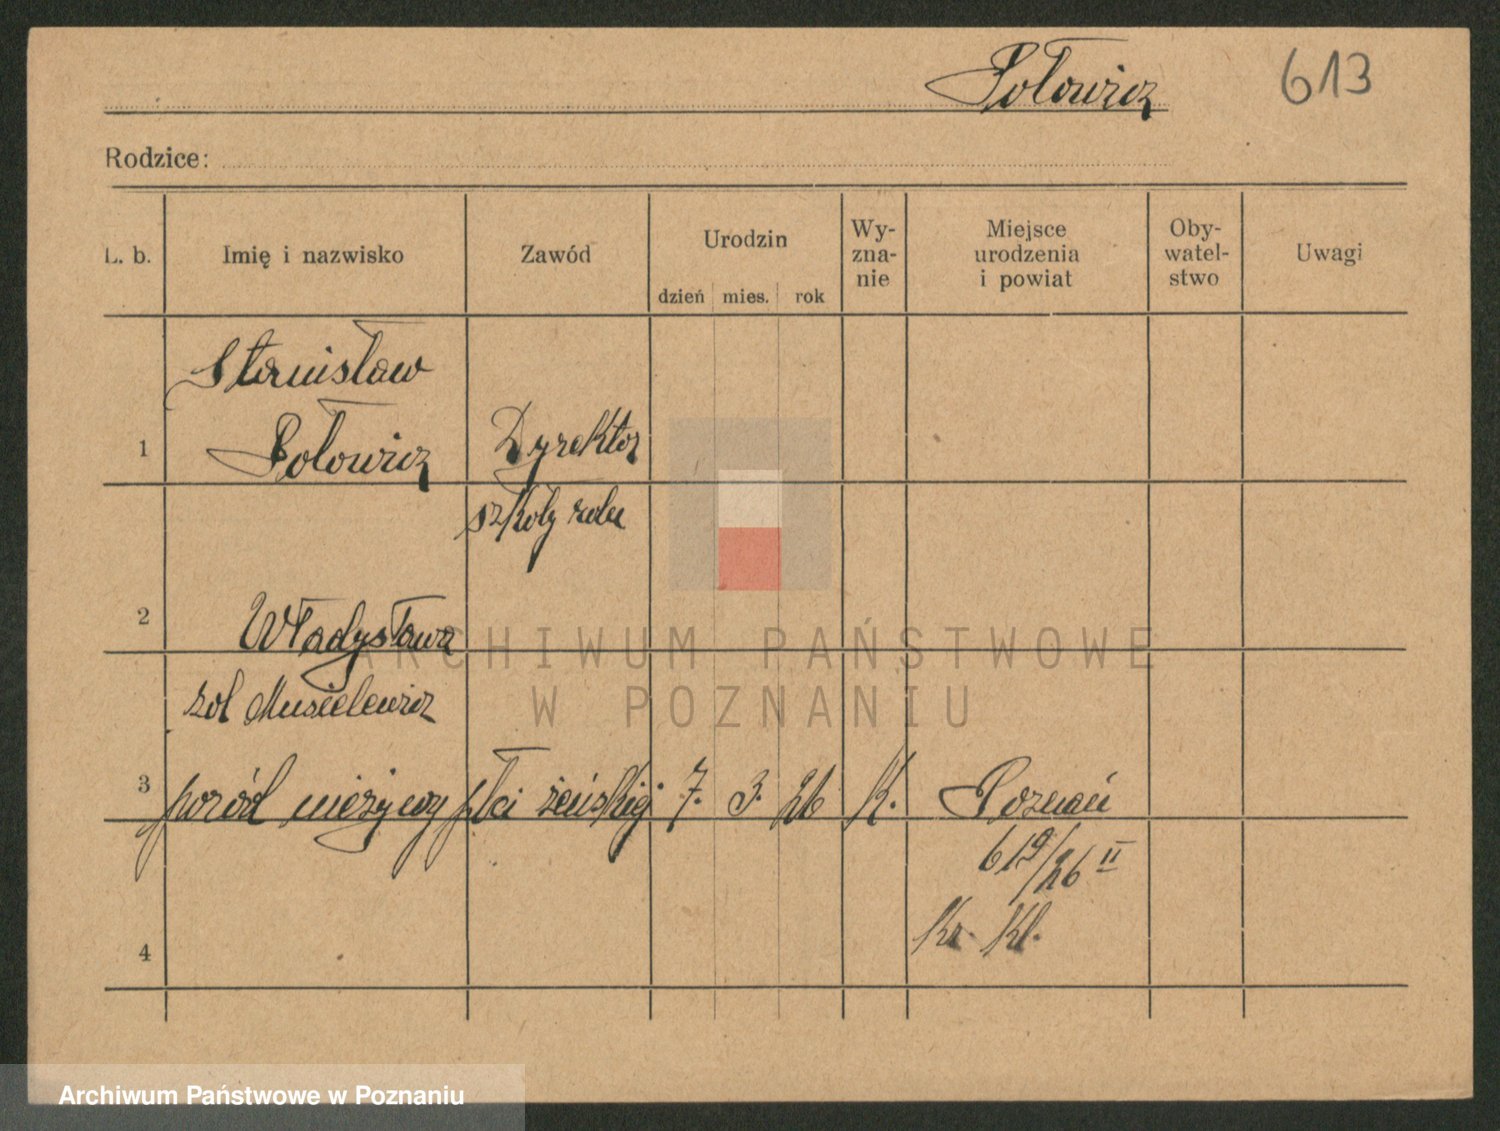 Połowicz
613
Rodzice:
L. b.
Imię i nazwisko
Zawód
Urodzin
dzień mies. rok
Wy-
zna-
nie
Miejsce
urodzenia
i powiat
Oby-
watel-
stwo
Uwagi
Stanisław
1 Połowicz Dyrektor
szkoły
2 Władysława
Musielewicz
3 poród nieżywy płci żeńskiej 7. 3. 26 K. Poznań
619/26 II
Kr. Kl.
4
ARCHIWUM PAŃSTWOWE
W POZNANIU
Archiwum Państwowe w Poznaniu